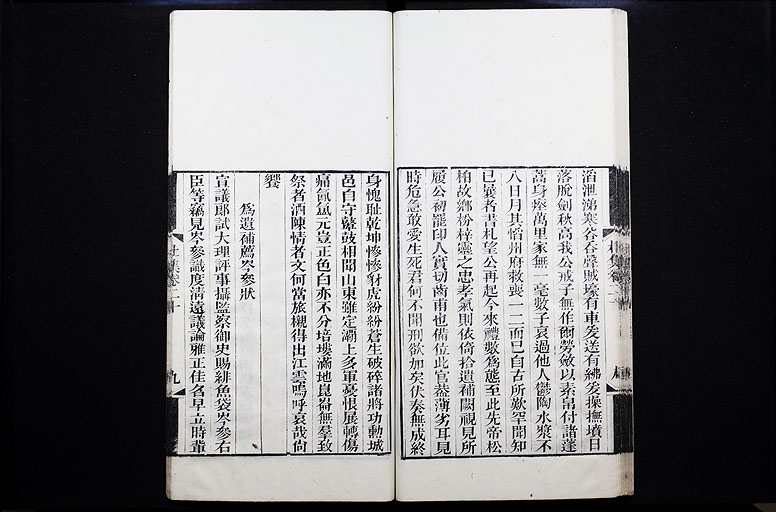 滔泄涕寒谷吞聲賊壕有車爰送有紼爰操撫墳日
落脫劍秋高我公戒子無作爾勞斂以素帛付諸蓬
蒿身瘞萬里家無一毫數子哀過他人鬱陶水漿不
八日月其慆州府救喪一二而已自古所歎罕聞知
已曩者書札望公再起今來禮數爲態至此先帝松
柏故鄉枌梓靈之忠孝氣則依倚拾遺補闕視見所
履公初罷印人實切齒甫也備位此官葢薄劣耳見
時危急敢愛生死君何不聞刑欲加矣伏奏無成終
身愧耻乾坤慘慘豺虎紛紛蒼生破碎諸將功勳城
邑自守鼙鼓相聞山東雖定灞上多軍憂恨展轉傷
痛氤氳元豈正色白亦不分培塿滿地崑崙無羣致
祭者酒陳情者文何當旅櫬得出江雲嗚呼哀哉尙
饗
爲遺補薦岑參狀
宣議郎試大理評事攝監察御史賜緋魚袋岑參右
臣等竊見岑參識度清遠議論雅正佳名早立時輩
杜集卷二十
九